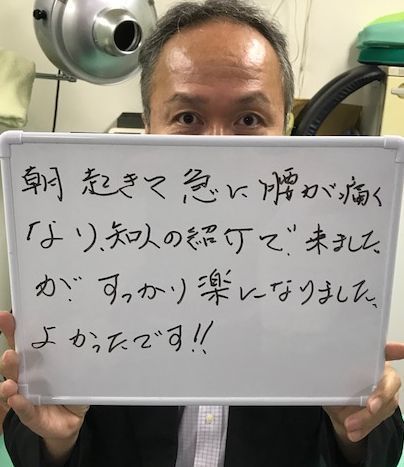 朝起きて急に腰が痛く
なり、知人の紹介で、来ました
が、すっかり楽になりました、
よかったです!!